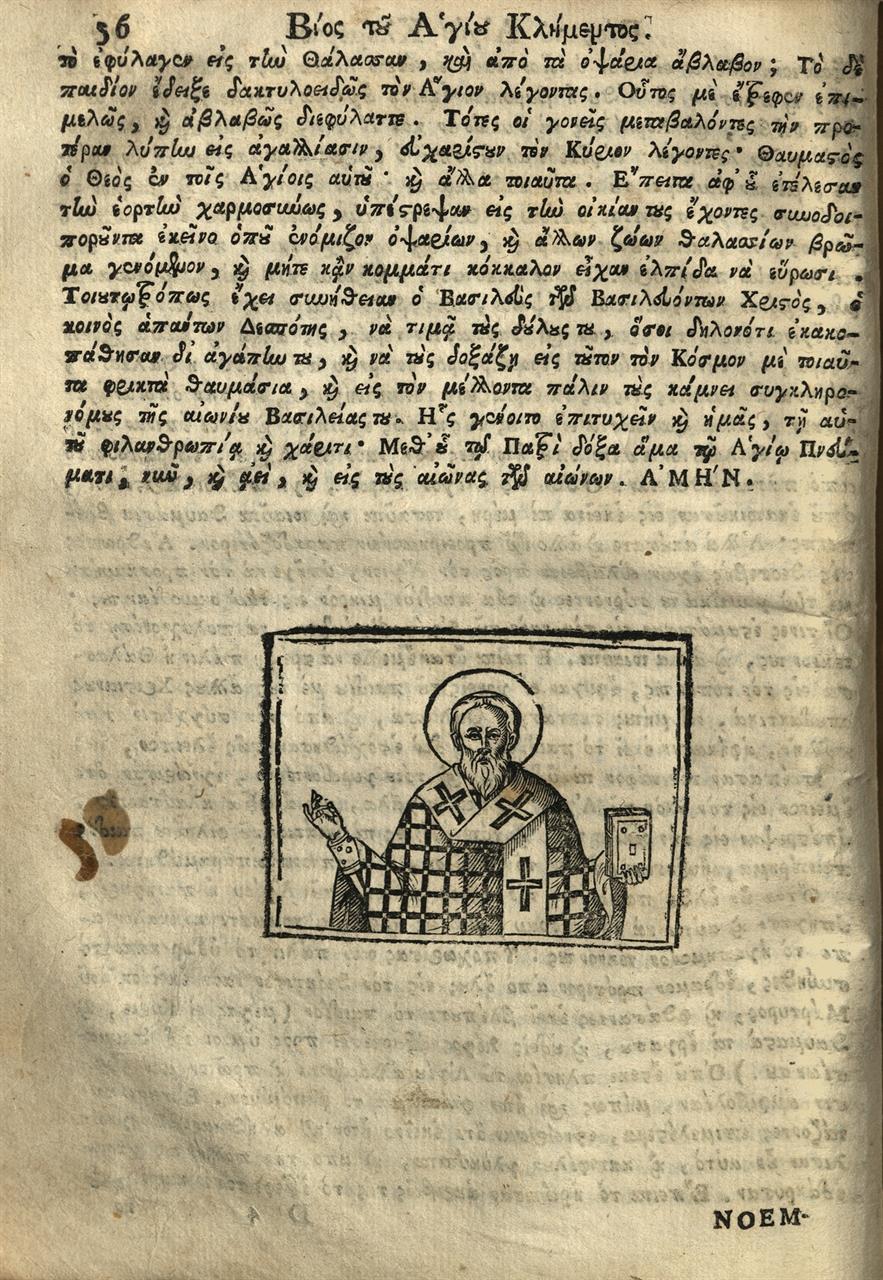 56 Βίος τȣ͂ Ἁγίȣ Κλήμεντος.
τὸ ἐφύλαγεν εἰς τὴν Θάλασσαν, καὶ ἀπὸ τὰ ὀψάρια ἄβλαβον; Τὸ δὲ
παιδίον ἔδειξε δακτυλοειδῶς τὸν Ἅγιον λέγοντας. Οὗτος μὲ ἔτρεφεν ἐπι-
μελῶς, καὶ ἀβλαβῶς διεφύλαττε. Τότες οἱ γονεῖς μεταβαλόντες τὴν προ-
τέραν λύπην εἰς ἀγαλλίασιν, εὐχαρίστȣν τὸν Κύριον λέγοντες· Θαυμαστὸς
ὁ Θεὸς ἐν τοῖς Ἁγίοις αὐτȣ͂· καὶ ἄλλα τοιαῦτα. Ἔπειτα ἀφ' ȣ͗ ἐτέλεσαν
τὴν ἑορτὴν χαρμοσύνως, ὑπέστρεψαν εἰς τὴν οἰκίαν τȣς ἔχοντες συνοδοι-
πορȣ͂ντα ἐκεῖνο ὁπȣ͂ ἐνόμιζον ὀψαρίων, καὶ ἄλλων ζώων θαλασσίων βρῶ-
μα γενόμενον, καὶ μήτε κᾂν κομμάτι κόκκαλον εἶχαν ἐλπίδα νὰ εὕρωσι.
Τοιȣτοτρόπως ἔχει συνήθειαν ὁ Βασιλεὺς τῶν Βασιλευόντων Χριστὸς, ὁ
κοινὸς ἁπάντων Δεσπότης, νὰ τιμᾷ τȣ̀ς δȣ́λȣς τȣ, ὅσοι δηλονότι ἐκακο-
πάθησαν δι' ἀγάπην τȣ, καὶ νὰ τȣ̀ς δοξάζῃ εἰς τȣ͂τον τὸν Κόσμον μὲ τοιαῦ-
τα φρικτὰ θαυμάσια, καὶ εἰς τὸν μέλλοντα πάλιν τȣ̀ς κάμνει συγκληρο-
νόμȣς τῆς αἰωνίȣ Βασιλείας τȣ. Ἧς γένοιτο ἐπιτυχεῖν καὶ ἡμᾶς, τῇ αὐ-
τȣ͂ φιλανθρωπίᾳ καὶ χάριτι· Μεθ' ȣ͗ τῷ Πατρὶ δόξα ἅμα τῷ Ἁγίῳ Πνεύ-
ματι, νῦν, καὶ ἀεὶ, καὶ εἰς τȣ̀ς αἰῶνας τῶν αἰώνων. ἈΜΗΝ.
ΝΟΕΜ-